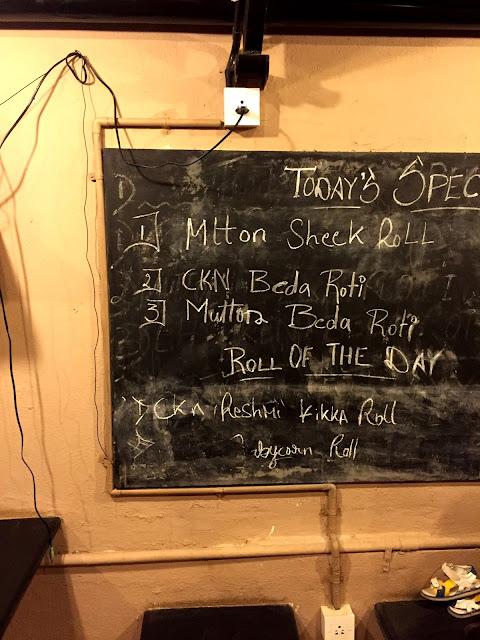 TODAY'S SPEC
1 Mtton Sheek Roll
2 CKN Beda Roti
3 Mutton Beda Roti
ROLL OF THE DAY
CKN Reshmi KIKKA Roll
Roll